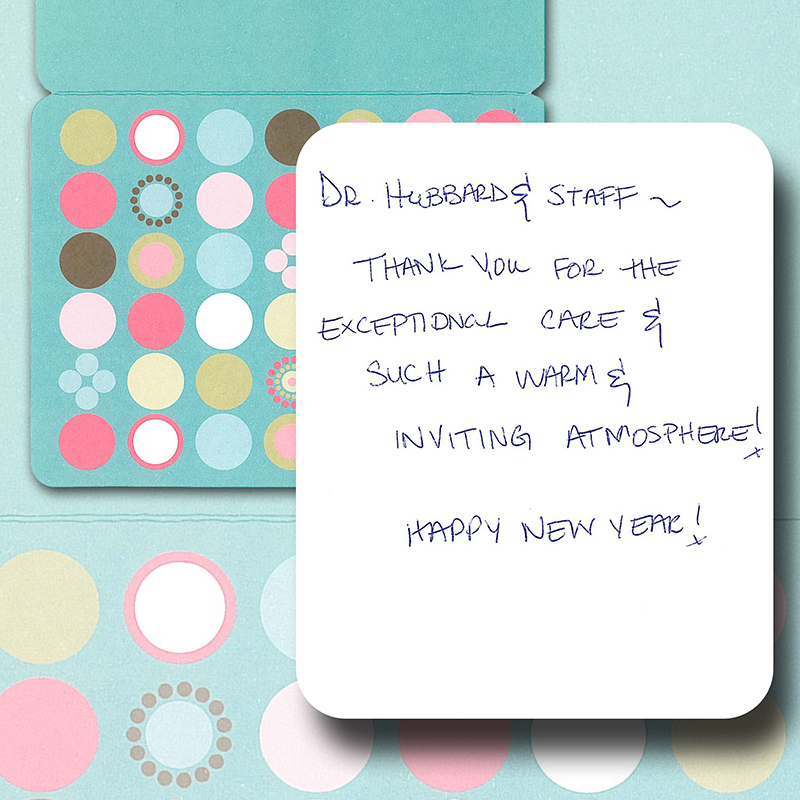 DR. HUBBARD & STAFF ~
THANK YOU FOR THE
EXCEPTIONAL CARE &
SUCH A WARM &
INVITING ATMOSPHERE!
HAPPY NEW YEAR!